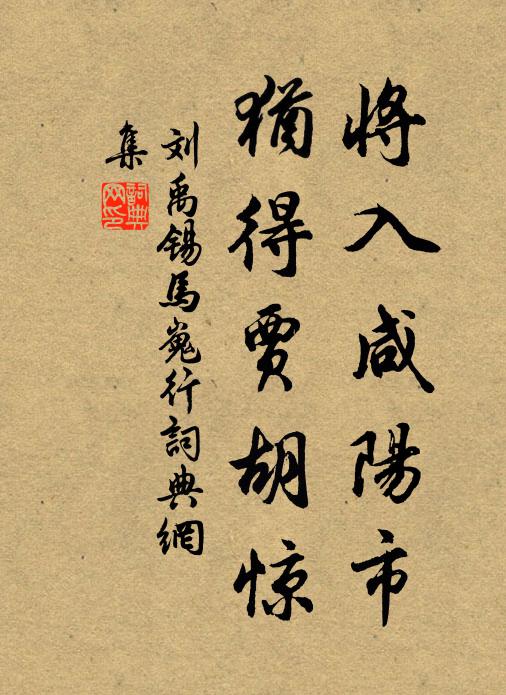 将入咸陽市
猶得賈胡惊
刘禹锡馬嵬行詞典網
集
詞典
网印